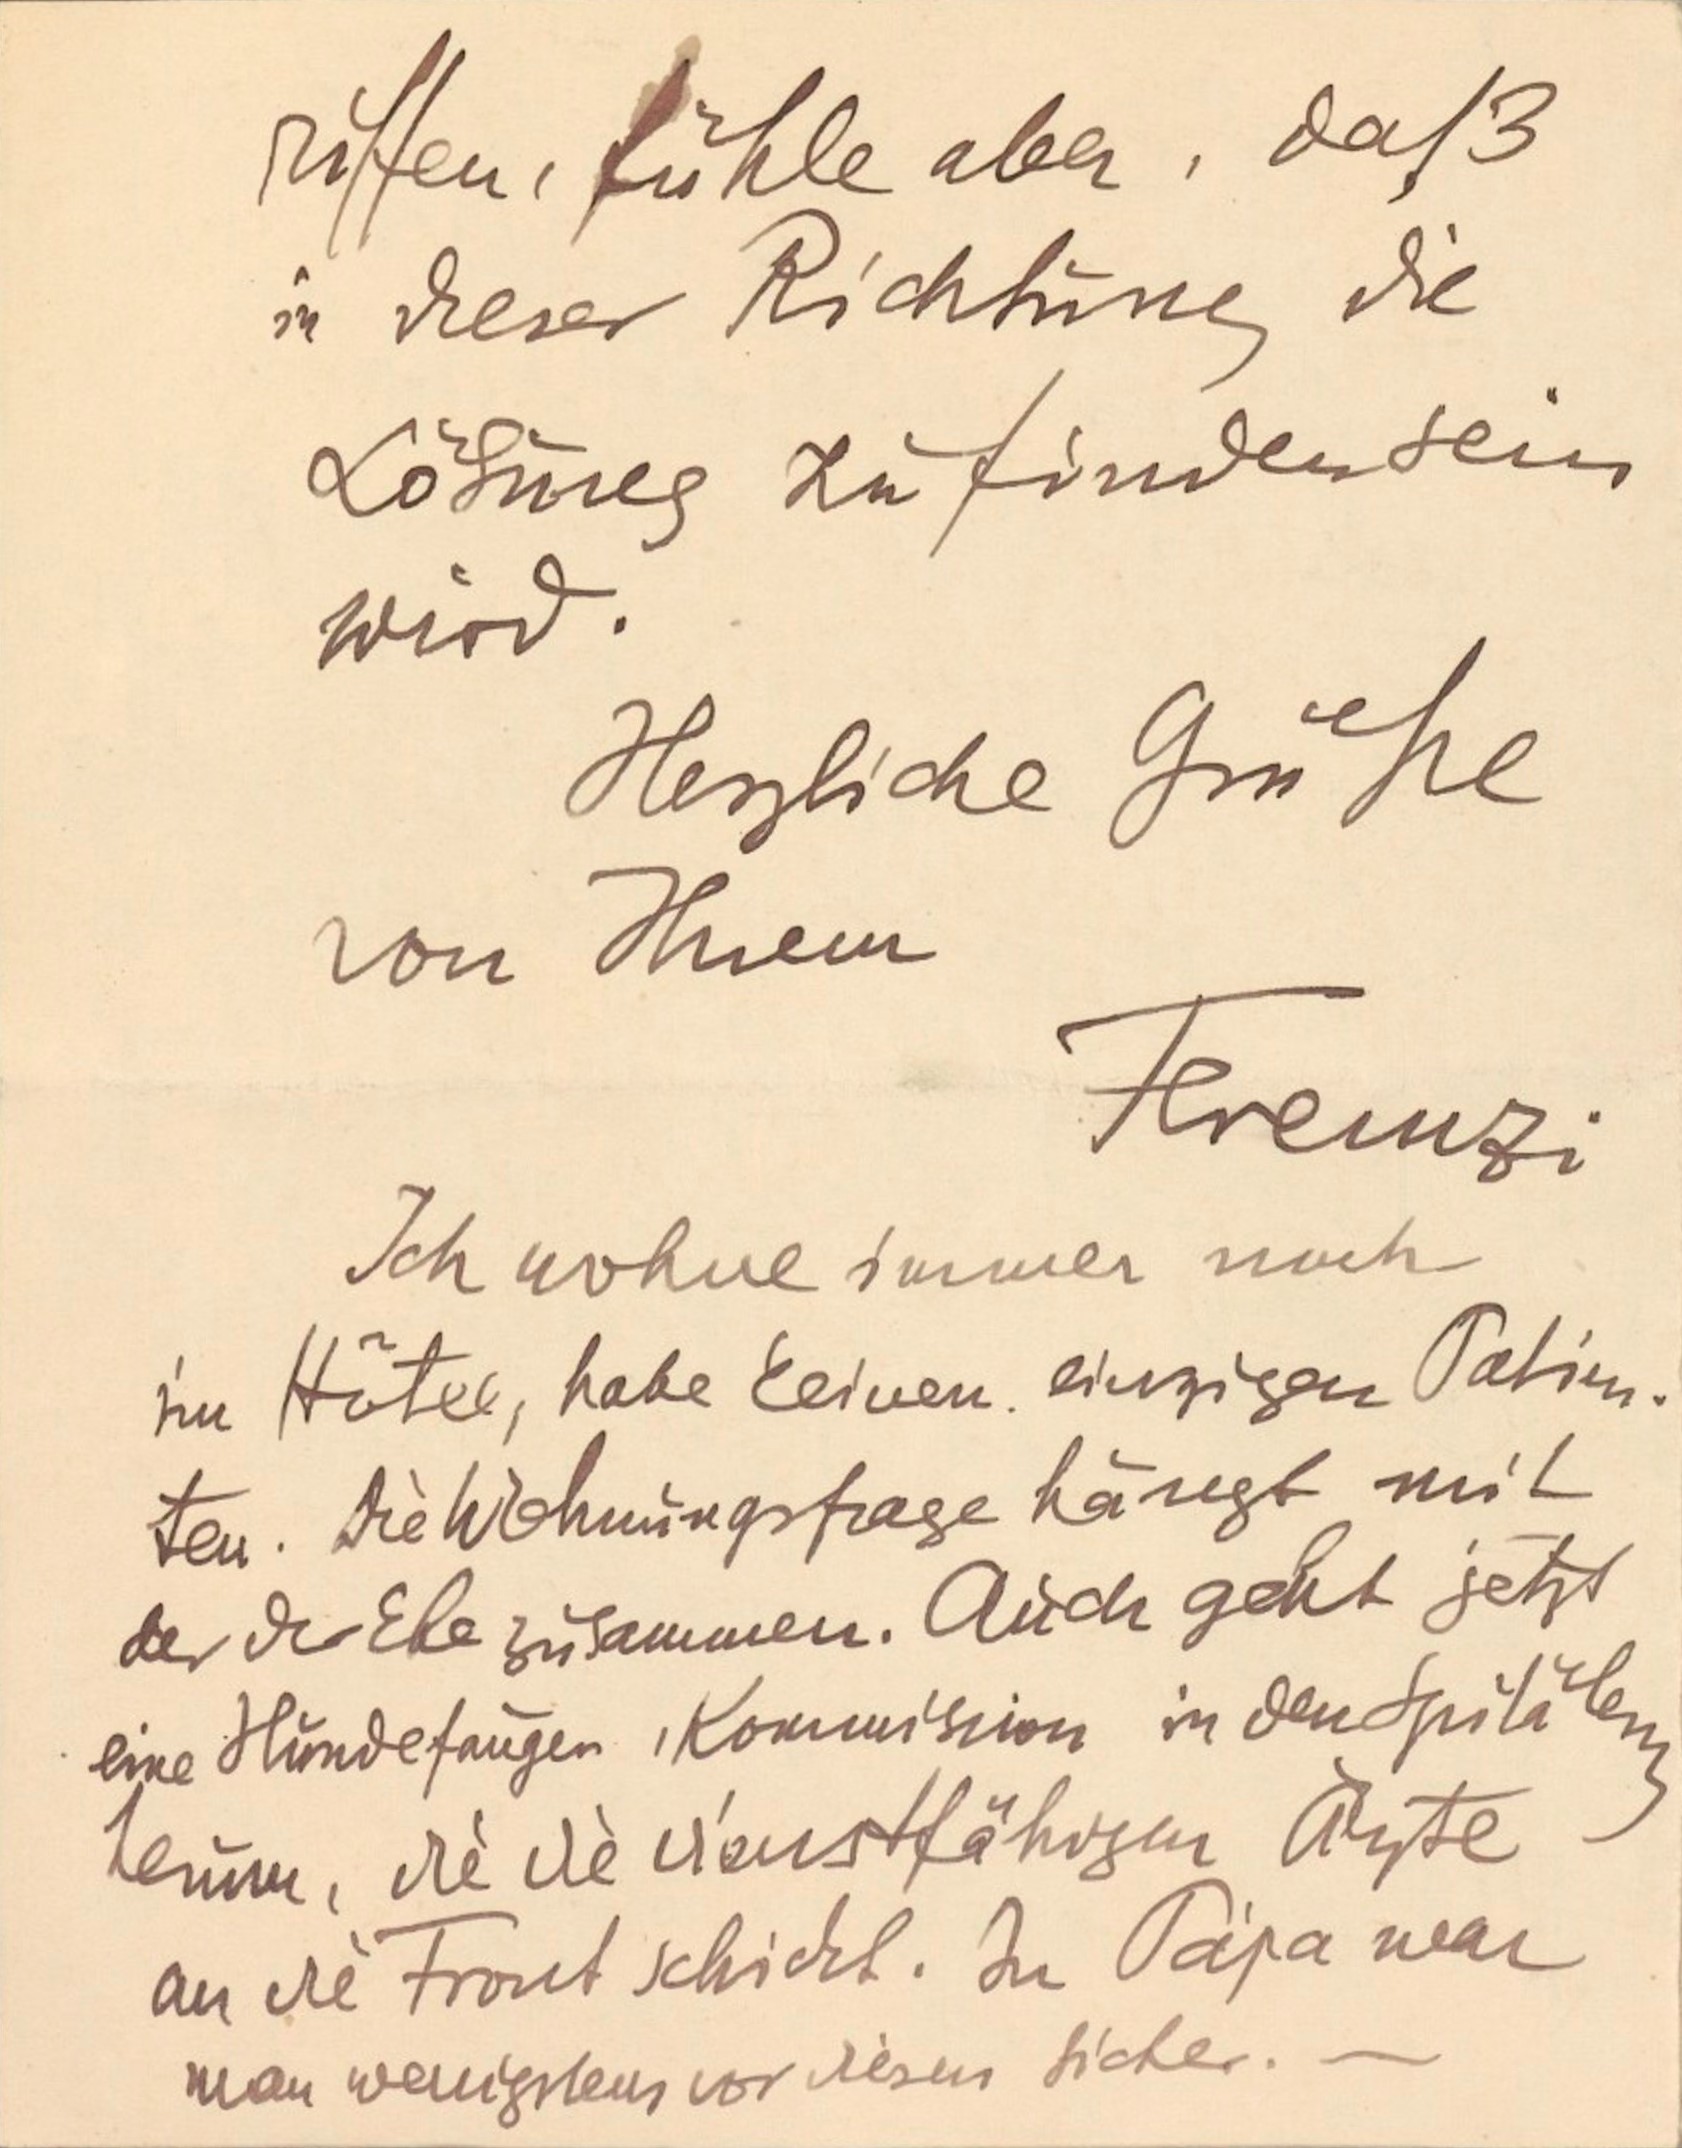 riffen, fühle aber, daß
in dieser Richtung die
Lösung zu finden sein
wird.
Herzliche Grüße
von Ihrem
Ferenczi
Ich wohne immer noch
im Hôtel, habe keinen einzigen Patien-
ten. Die Wohnungsfrage hängt mit
der der Ehe zusammen. Auch geht jetzt
eine Hundefänger-Kommission in den Spitälern
herum, die die dienstfähigen Ärzte
an die Front schickt. In Pápa war
man wenigstens vor diesen sicher. —